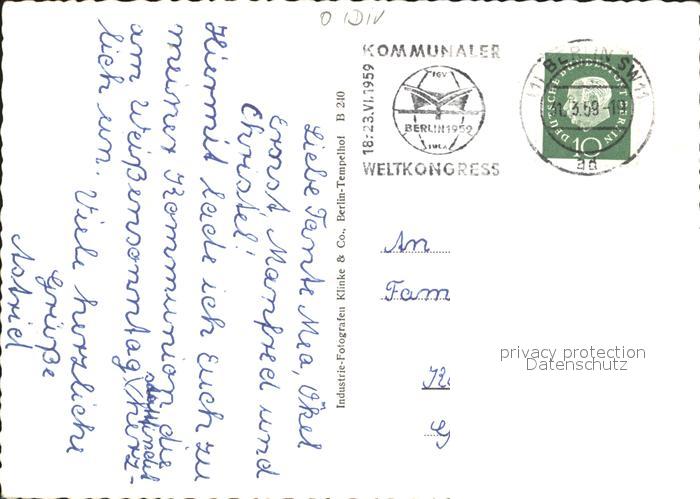 O IDIV
Liebe Tante Mea, Onkel
Ernst Manfred und
Christel!
Hiermit lade ich Euch zu
meiner Kommunion, die
am Weißensonntag stattfindet herz-
lich ein. Viele herzliche
Grüße
Astrid
Industrie-Fotografen Klinke & Co., Berlin-Tempelhof B 210
18:-23.VI.1959
KOMMUNALER
IGV
BERLIN 1959
IULA
WELTKONGRESS
(1) BERLIN SW 11
31.3.59-19
ad
DEUTSCHE BUNDESPOST BERLIN
10
An
Fam
privacy protection
Datenschutz